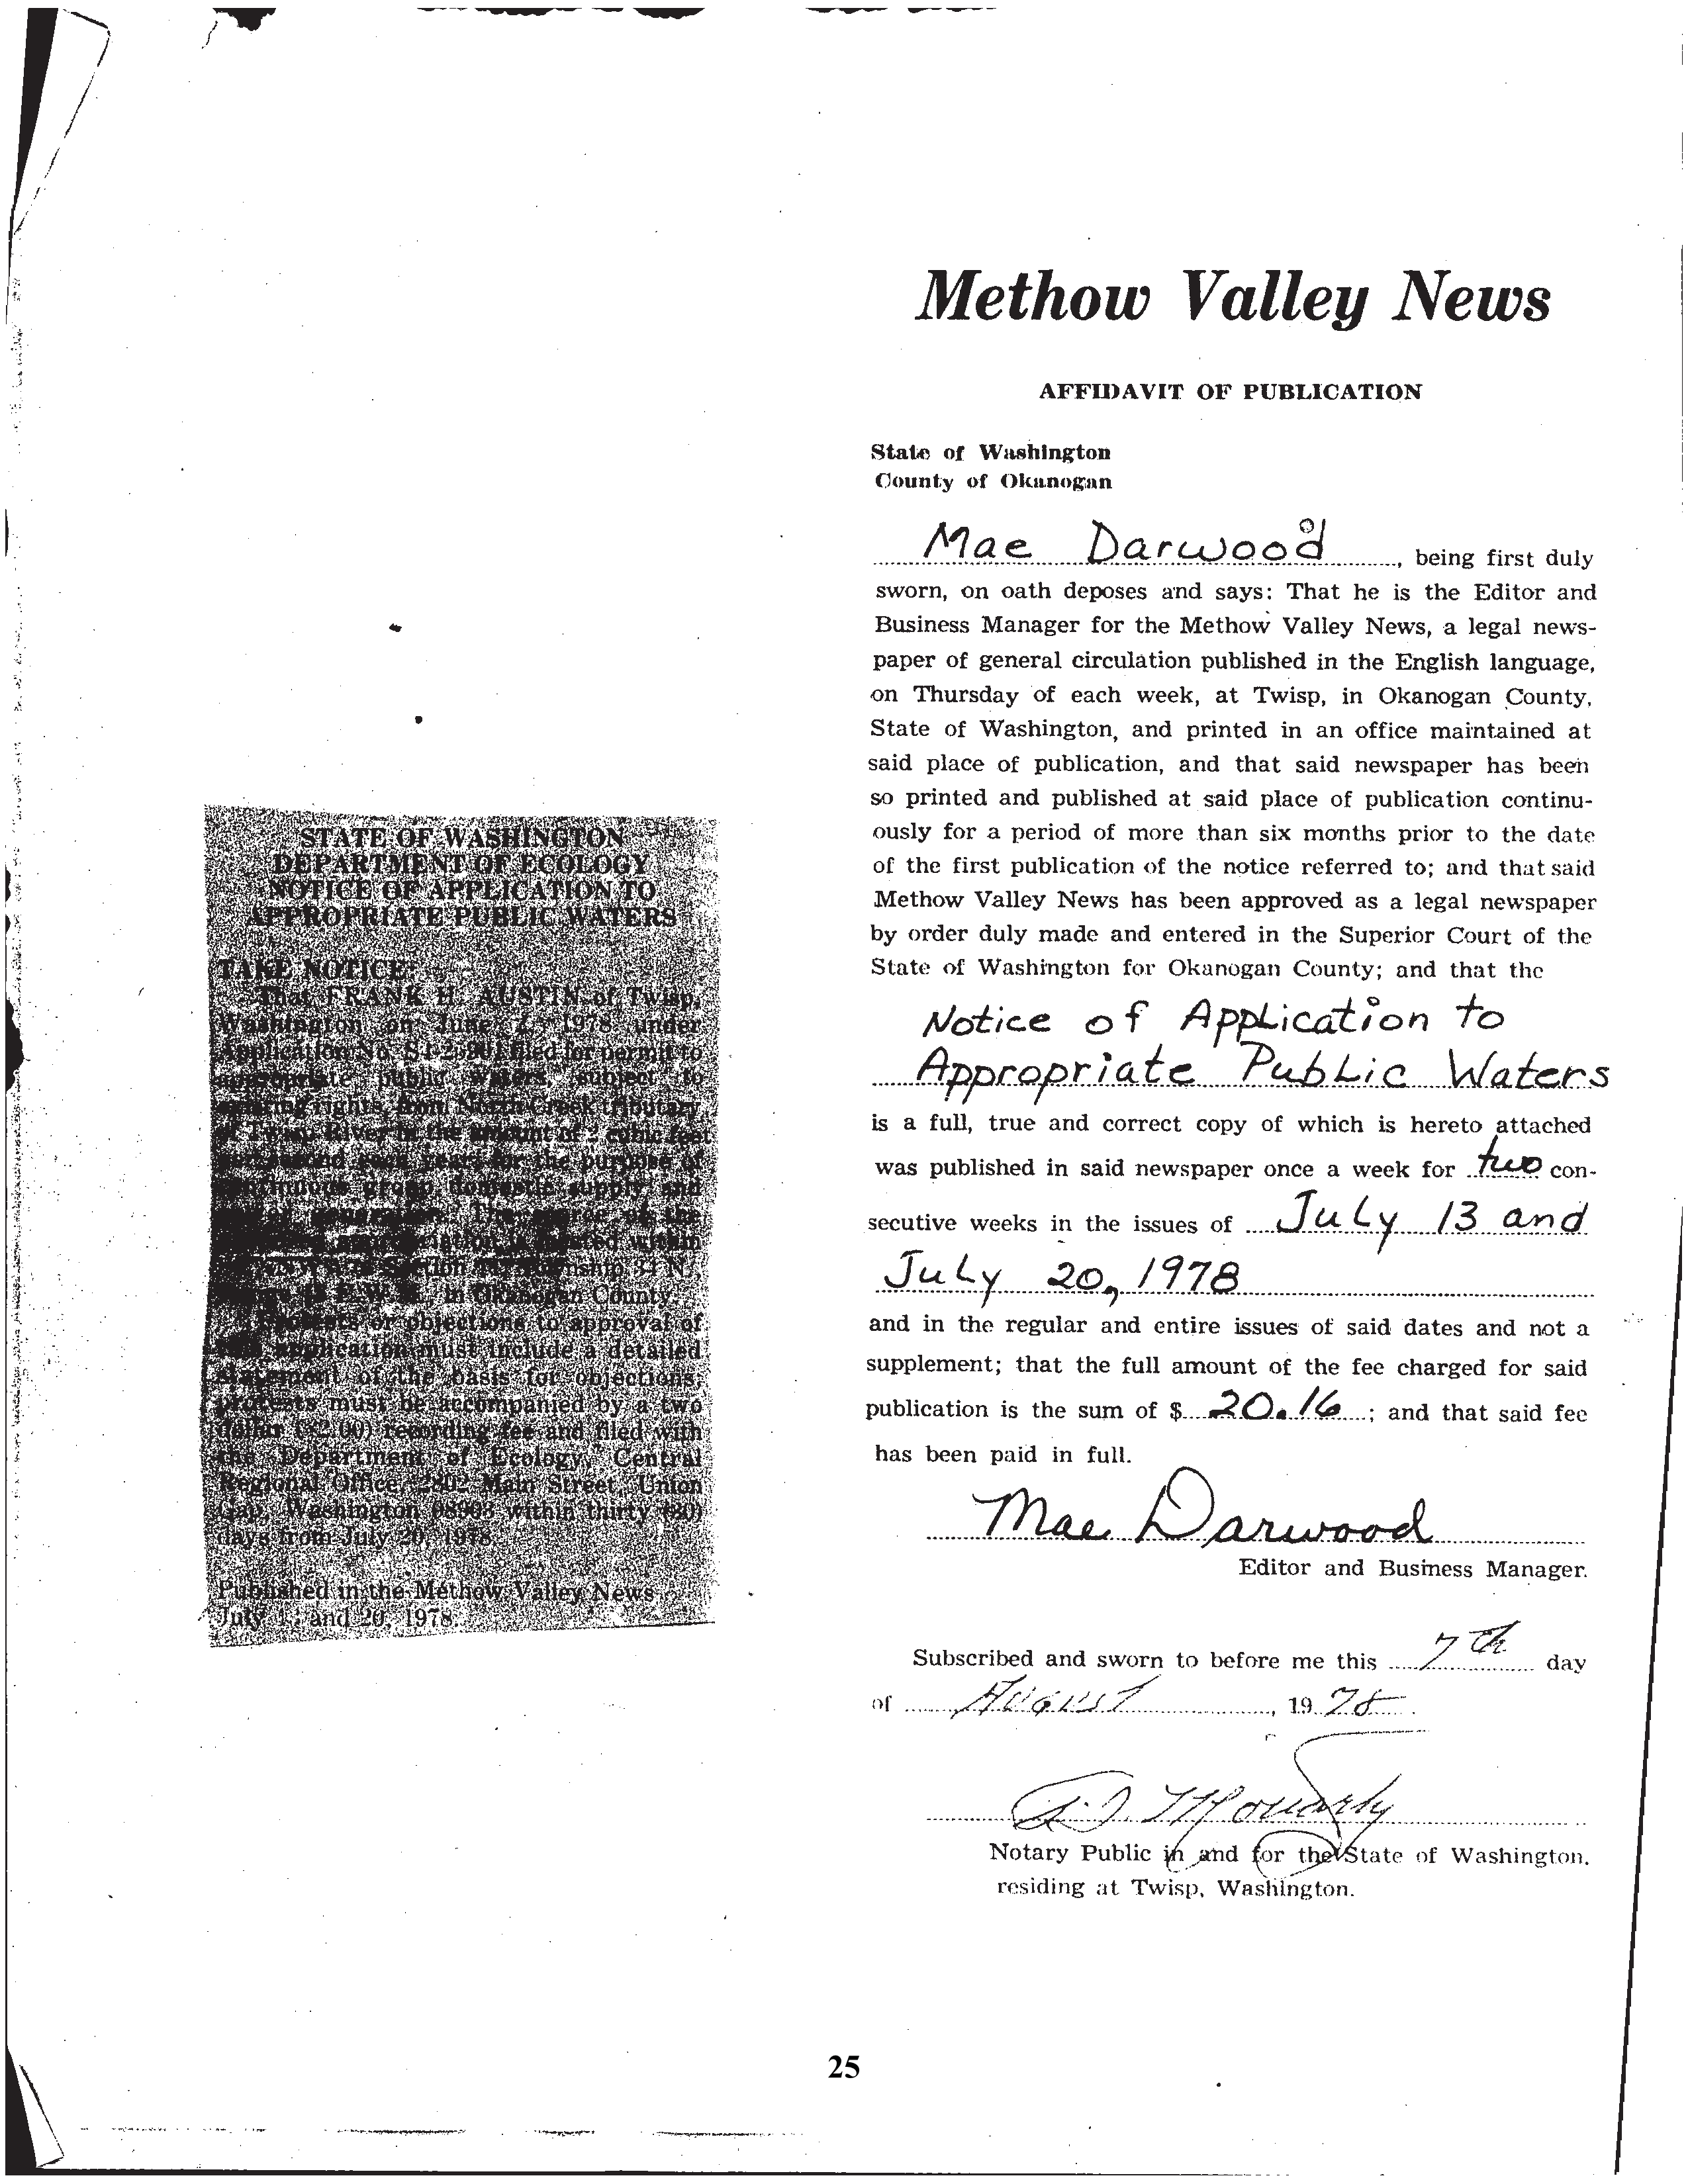 Methow Valley News
AFFIDAVIT OF PUBLICATION
State of Washington
County of Okanogan
Mae Darwood, being first duly
sworn, on oath deposes and says: That he is the Editor and
Business Manager for the Methow Valley News, a legal news-
paper of general circulation published in the English language,
on Thursday of each week, at Twisp, in Okanogan County,
State of Washington, and printed in an office maintained at
said place of publication, and that said newspaper has been
so printed and published at said place of publication continu-
ously for a period of more than six months prior to the date
of the first publication of the notice referred to; and that said
Methow Valley News has been approved as a legal newspaper
by order duly made and entered in the Superior Court of the
State of Washington for Okanogan County; and that the
Notice of Application to
Appropriate Public Waters
is a full, true and correct copy of which is hereto attached
was published in said newspaper once a week for two con-
secutive weeks in the issues of July 13 and
July 20, 1978
and in the regular and entire issues of said dates and not a
supplement; that the full amount of the fee charged for said
publication is the sum of $ 20.16; and that said fee
has been paid in full.
Mae Darwood
Editor and Business Manager.
Subscribed and sworn to before me this 7th day
of August, 1978
Notary Public in and for the State of Washington.
residing at Twisp, Washington.
STATE OF WASHINGTON
DEPARTMENT OF ECOLOGY
NOTICE OF APPLICATION TO
APPROPRIATE PUBLIC WATERS
TAKE NOTICE:
That FRANK H. AUSTIN of Twisp,
Washington on June 1978 under
Application No. filed for permit to
appropriate public waters, subject to
existing rights, from North Creek tributary
of Twisp River in the amount of 2 cubic feet
per second each year for the purpose of
continuous group domestic supply and
The source of the
appropriation is located within
Section Township 34 N.,
E.W.M., in Okanogan County.
Protests or objections to approval of
this application must include a detailed
statement of the basis for objections;
protests must be accompanied by a two
dollar ($2.00) recording fee and filed with
the Department of Ecology, Central
Regional Office, 2802 Main Street, Union
Gap, Washington 98903 within thirty (30)
days from July 20, 1978.
Published in the Methow Valley News
July 13 and 20, 1978.
25